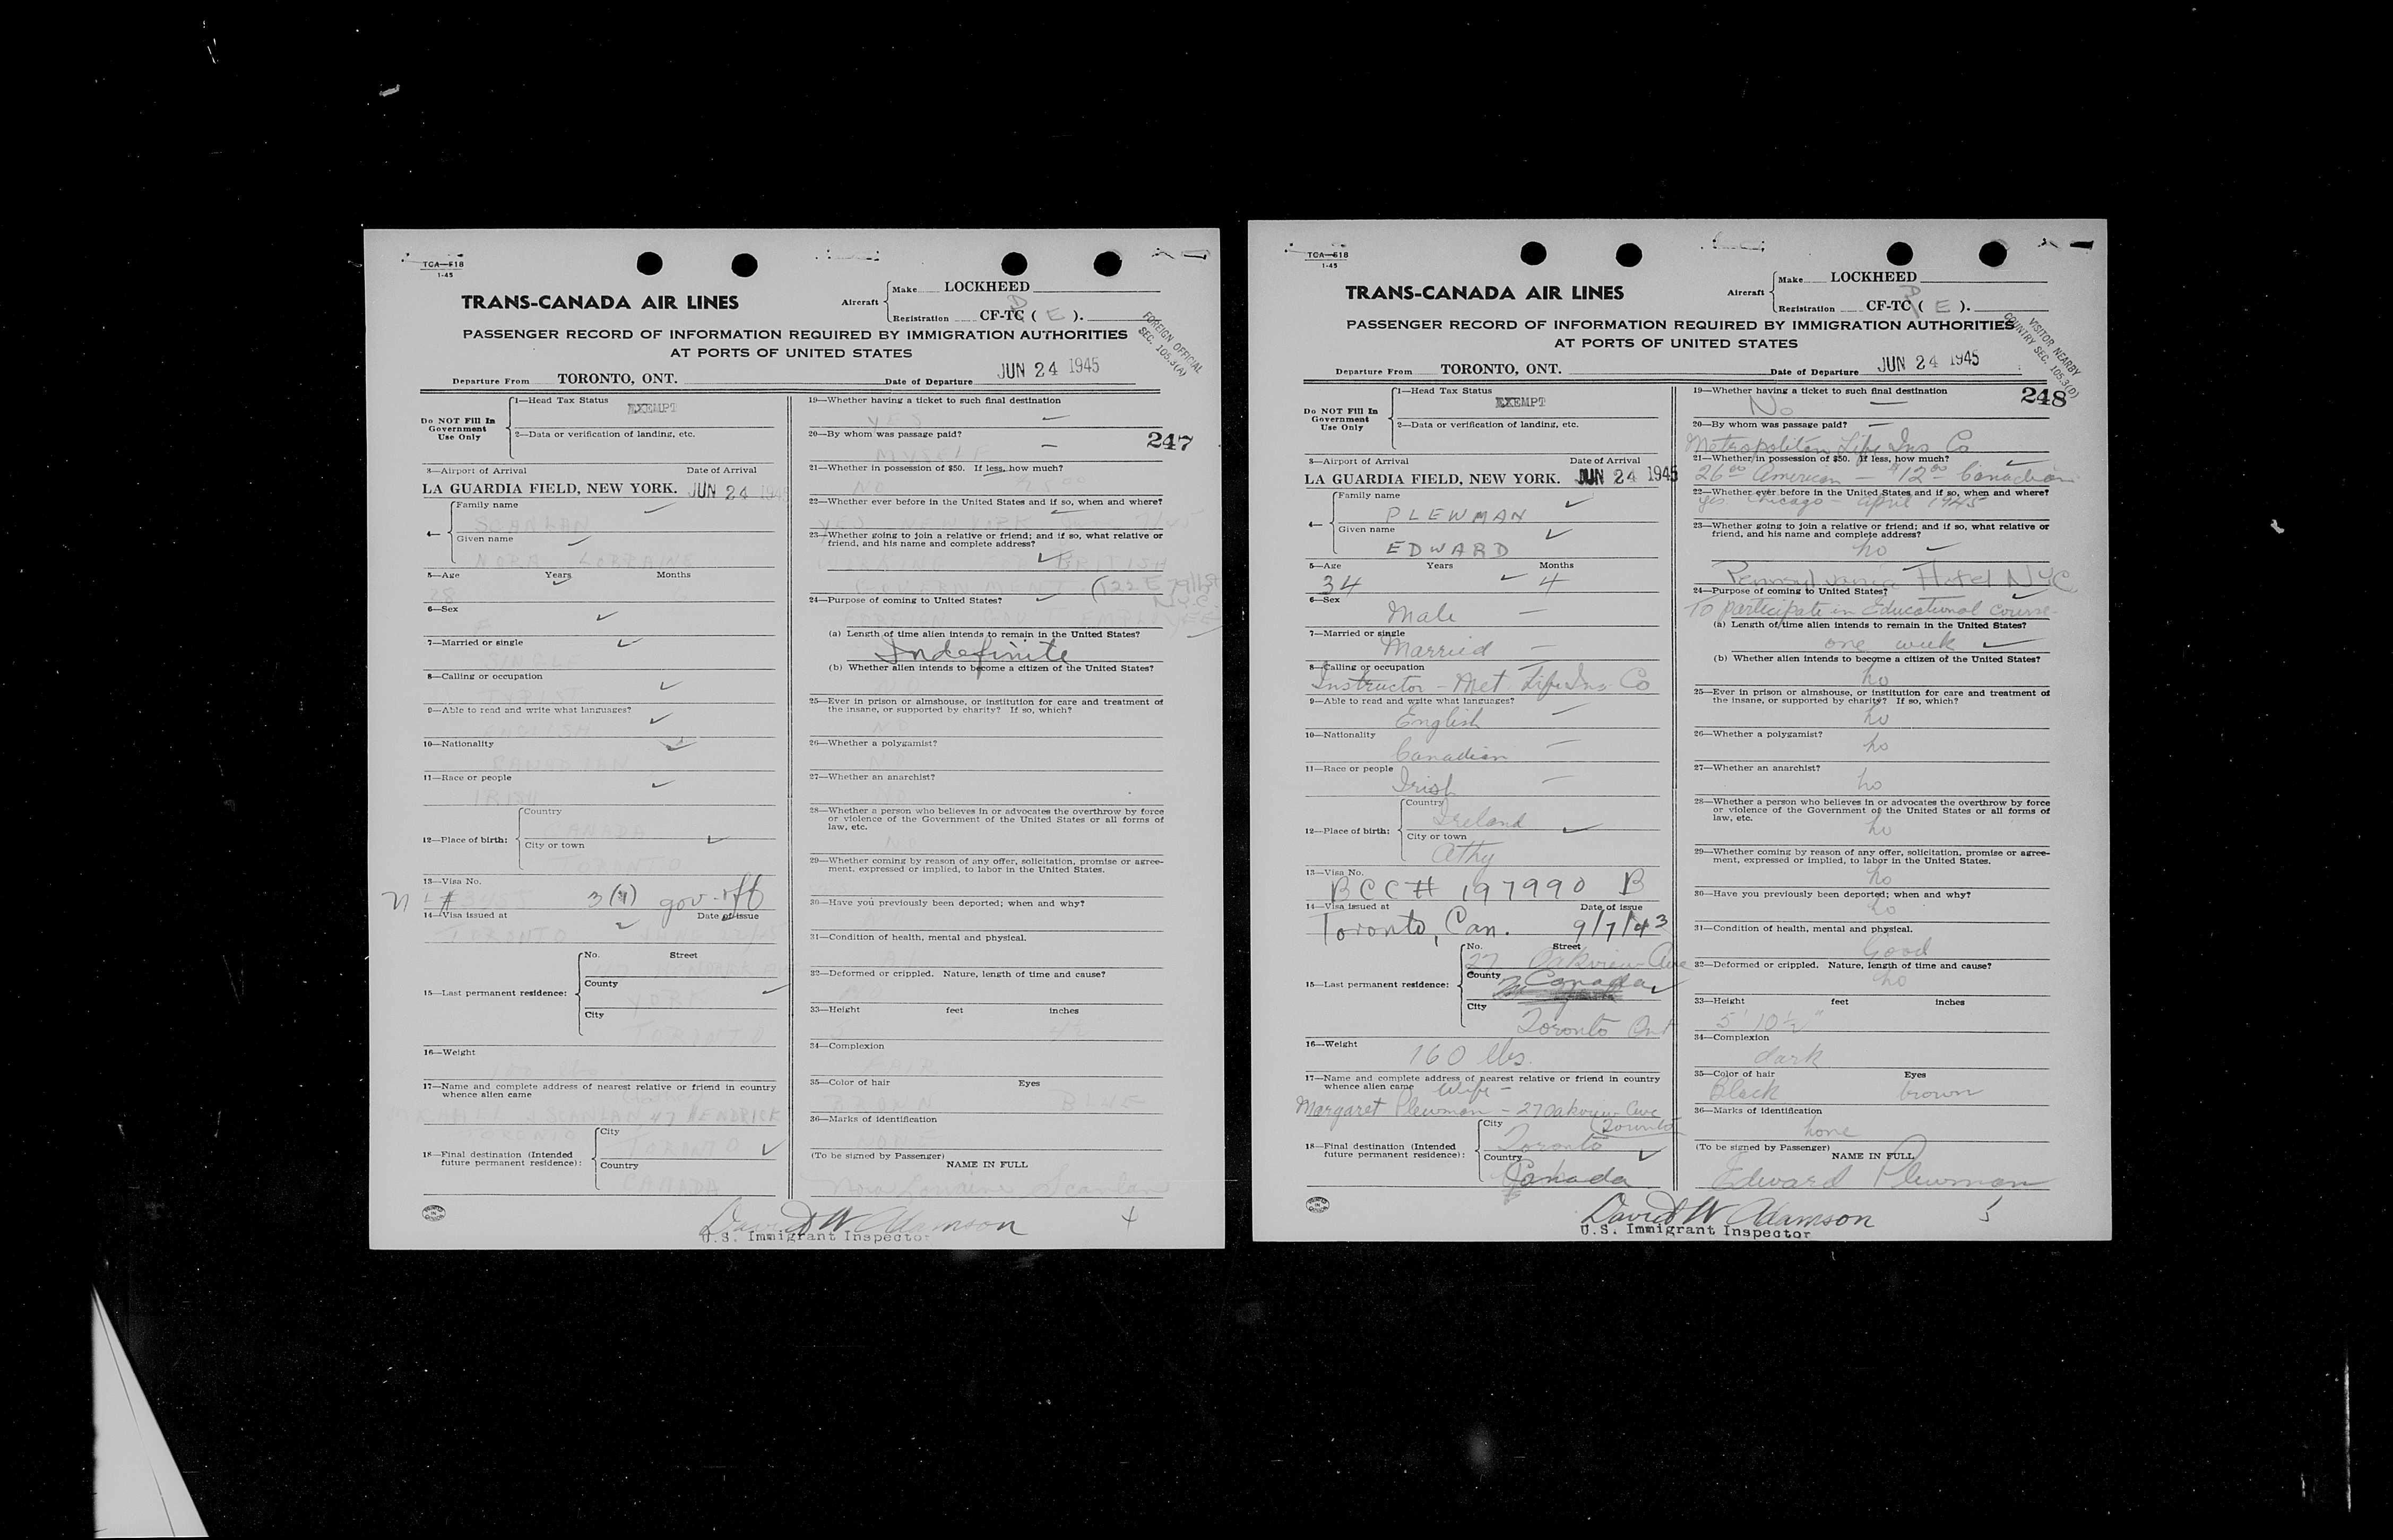 TCA—618
1-45
TRANS-CANADA AIR LINES
Aircraft
Make LOCKHEED
Registration CF-TC ( E ).
PASSENGER RECORD OF INFORMATION REQUIRED BY IMMIGRATION AUTHORITIES
AT PORTS OF UNITED STATES
FOREIGN OFFICIAL
SEC. 105.3(A)
Departure From TORONTO, ONT. Date of Departure JUN 24 1945
Do NOT Fill In
Government
Use Only
1—Head Tax Status
EXEMPT
2—Data or verification of landing, etc.
3—Airport of Arrival Date of Arrival
LA GUARDIA FIELD, NEW YORK. JUN 24 1945
4—
Family name
SCANLAN
Given name
NORA LORRAINE
5—Age Years Months
28
6—Sex
F
7—Married or single
SINGLE
8—Calling or occupation
TYPIST
9—Able to read and write what languages?
ENGLISH
10—Nationality
CANADIAN
11—Race or people
IRISH
12—Place of birth:
Country
CANADA
City or town
TORONTO
13—Visa No.
3(1) gov. off
14—Visa issued at Date of issue
TORONTO
15—Last permanent residence:
No. Street
County
YORK
City
TORONTO
16—Weight
17—Name and complete address of nearest relative or friend in country
whence alien came
SCANLAN, 47 HENDRICK
TORONTO
18—Final destination (Intended
future permanent residence):
City
TORONTO
Country
CANADA
19—Whether having a ticket to such final destination
YES
247
20—By whom was passage paid?
MYSELF
21—Whether in possession of $50. If less, how much?
NO
22—Whether ever before in the United States and if so, when and where?
YES NEW YORK
23—Whether going to join a relative or friend; and if so, what relative or
friend, and his name and complete address?
BRITISH
GOVERNMENT (122 E
N.Y.C.
24—Purpose of coming to United States?
FOREIGN GOV. EMPLOYEE
(a) Length of time alien intends to remain in the United States?
Indefinite
(b) Whether alien intends to become a citizen of the United States?
NO
25—Ever in prison or almshouse, or institution for care and treatment of
the insane, or supported by charity? If so, which?
NO
26—Whether a polygamist?
NO
27—Whether an anarchist?
NO
28—Whether a person who believes in or advocates the overthrow by force
or violence of the Government of the United States or all forms of
law, etc.
NO
29—Whether coming by reason of any offer, solicitation, promise or agree-
ment, expressed or implied, to labor in the United States.
30—Have you previously been deported; when and why?
31—Condition of health, mental and physical.
32—Deformed or crippled. Nature, length of time and cause?
33—Height feet inches
34—Complexion
FAIR
35—Color of hair Eyes
BROWN BLUE
36—Marks of identification
NONE
(To be signed by Passenger)
NAME IN FULL
Nora Lorraine Scanlan
David W Adamson
U.S. Immigrant Inspector
TCA—618
1-45
TRANS-CANADA AIR LINES
Aircraft
Make LOCKHEED
Registration CF-TC ( E ).
PASSENGER RECORD OF INFORMATION REQUIRED BY IMMIGRATION AUTHORITIES
AT PORTS OF UNITED STATES
VISITOR NEARBY
COUNTRY SEC. 105.3(D)
Departure From TORONTO, ONT. Date of Departure JUN 24 1945
Do NOT Fill In
Government
Use Only
1—Head Tax Status
EXEMPT
2—Data or verification of landing, etc.
3—Airport of Arrival Date of Arrival
LA GUARDIA FIELD, NEW YORK. JUN 24 1945
4—
Family name
PLEWMAN
Given name
EDWARD
5—Age Years Months
34 4
6—Sex
Male
7—Married or single
Married
8—Calling or occupation
Instructor - Met Life Ins. Co
9—Able to read and write what languages?
English
10—Nationality
Canadian
11—Race or people
Irish
12—Place of birth:
Country
Ireland
City or town
Athy
13—Visa No.
BCC# 197990 B
14—Visa issued at Date of issue
Toronto, Can. 9/7/43
15—Last permanent residence:
No. Street
27 Oakview Ave
County
Canada
City
Toronto Ont
16—Weight
160 lbs.
17—Name and complete address of nearest relative or friend in country
whence alien came Wife -
Margaret Plewman - 27 Oakview Ave
Toronto
18—Final destination (Intended
future permanent residence):
City
Toronto
Country
Canada
19—Whether having a ticket to such final destination
No
248
20—By whom was passage paid?
Metropolitan Life Ins Co
21—Whether in possession of $50. If less, how much?
26.00 American - $12.00 Canadian
22—Whether ever before in the United States and if so, when and where?
yes Chicago - April 1945
23—Whether going to join a relative or friend; and if so, what relative or
friend, and his name and complete address?
no
Pennsylvania Hotel NYC
24—Purpose of coming to United States?
To participate in Educational course.
(a) Length of time alien intends to remain in the United States?
one week
(b) Whether alien intends to become a citizen of the United States?
no
25—Ever in prison or almshouse, or institution for care and treatment of
the insane, or supported by charity? If so, which?
no
26—Whether a polygamist?
no
27—Whether an anarchist?
no
28—Whether a person who believes in or advocates the overthrow by force
or violence of the Government of the United States or all forms of
law, etc.
no
29—Whether coming by reason of any offer, solicitation, promise or agree-
ment, expressed or implied, to labor in the United States.
no
30—Have you previously been deported; when and why?
no
31—Condition of health, mental and physical.
Good
32—Deformed or crippled. Nature, length of time and cause?
no
33—Height feet inches
5' 10½"
34—Complexion
dark
35—Color of hair Eyes
Black brown
36—Marks of identification
none
(To be signed by Passenger)
NAME IN FULL
Edward Plewman
David W Adamson
U.S. Immigrant Inspector